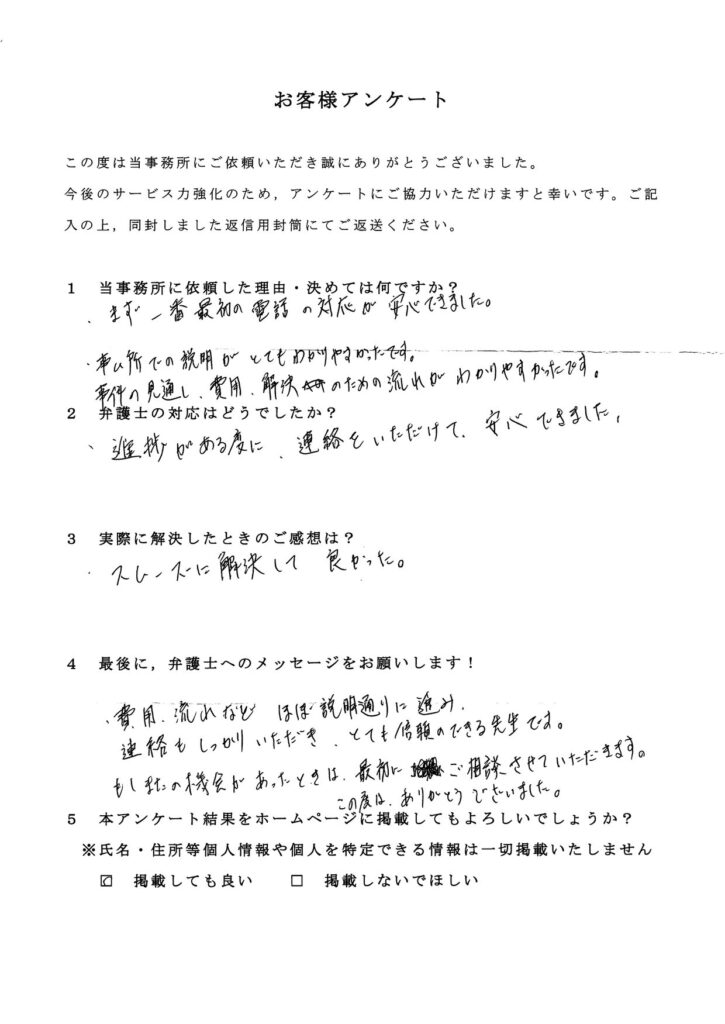 お客様アンケート
この度は当事務所にご依頼いただき誠にありがとうございました。
今後のサービス力強化のため，アンケートにご協力いただけますと幸いです。ご記
入の上，同封しました返信用封筒にてご返送ください。
1　当事務所に依頼した理由・決めては何ですか？
・まず一番最初の電話の対応が安心できました。
・事ム所での説明がとてもわかりやすかったです。
事件の見通し、費用、解決のための流れがわかりやすかったです。
2　弁護士の対応はどうでしたか？
・進捗がある度に、連絡をいただけて、安心できました。
3　実際に解決したときのご感想は？
・スムーズに解決して良かった。
4　最後に，弁護士へのメッセージをお願いします！
・費用、流れなどほぼ説明通りに進み、
連絡もしっかりいただき、とても信頼のできる先生です。
もしまたの機会があったときは、最初にご相談させていただきます。
この度は、ありがとうございました。
5　本アンケート結果をホームページに掲載してもよろしいでしょうか？
※氏名・住所等個人情報や個人を特定できる情報は一切掲載いたしません
☑　掲載しても良い　　□　掲載しないでほしい